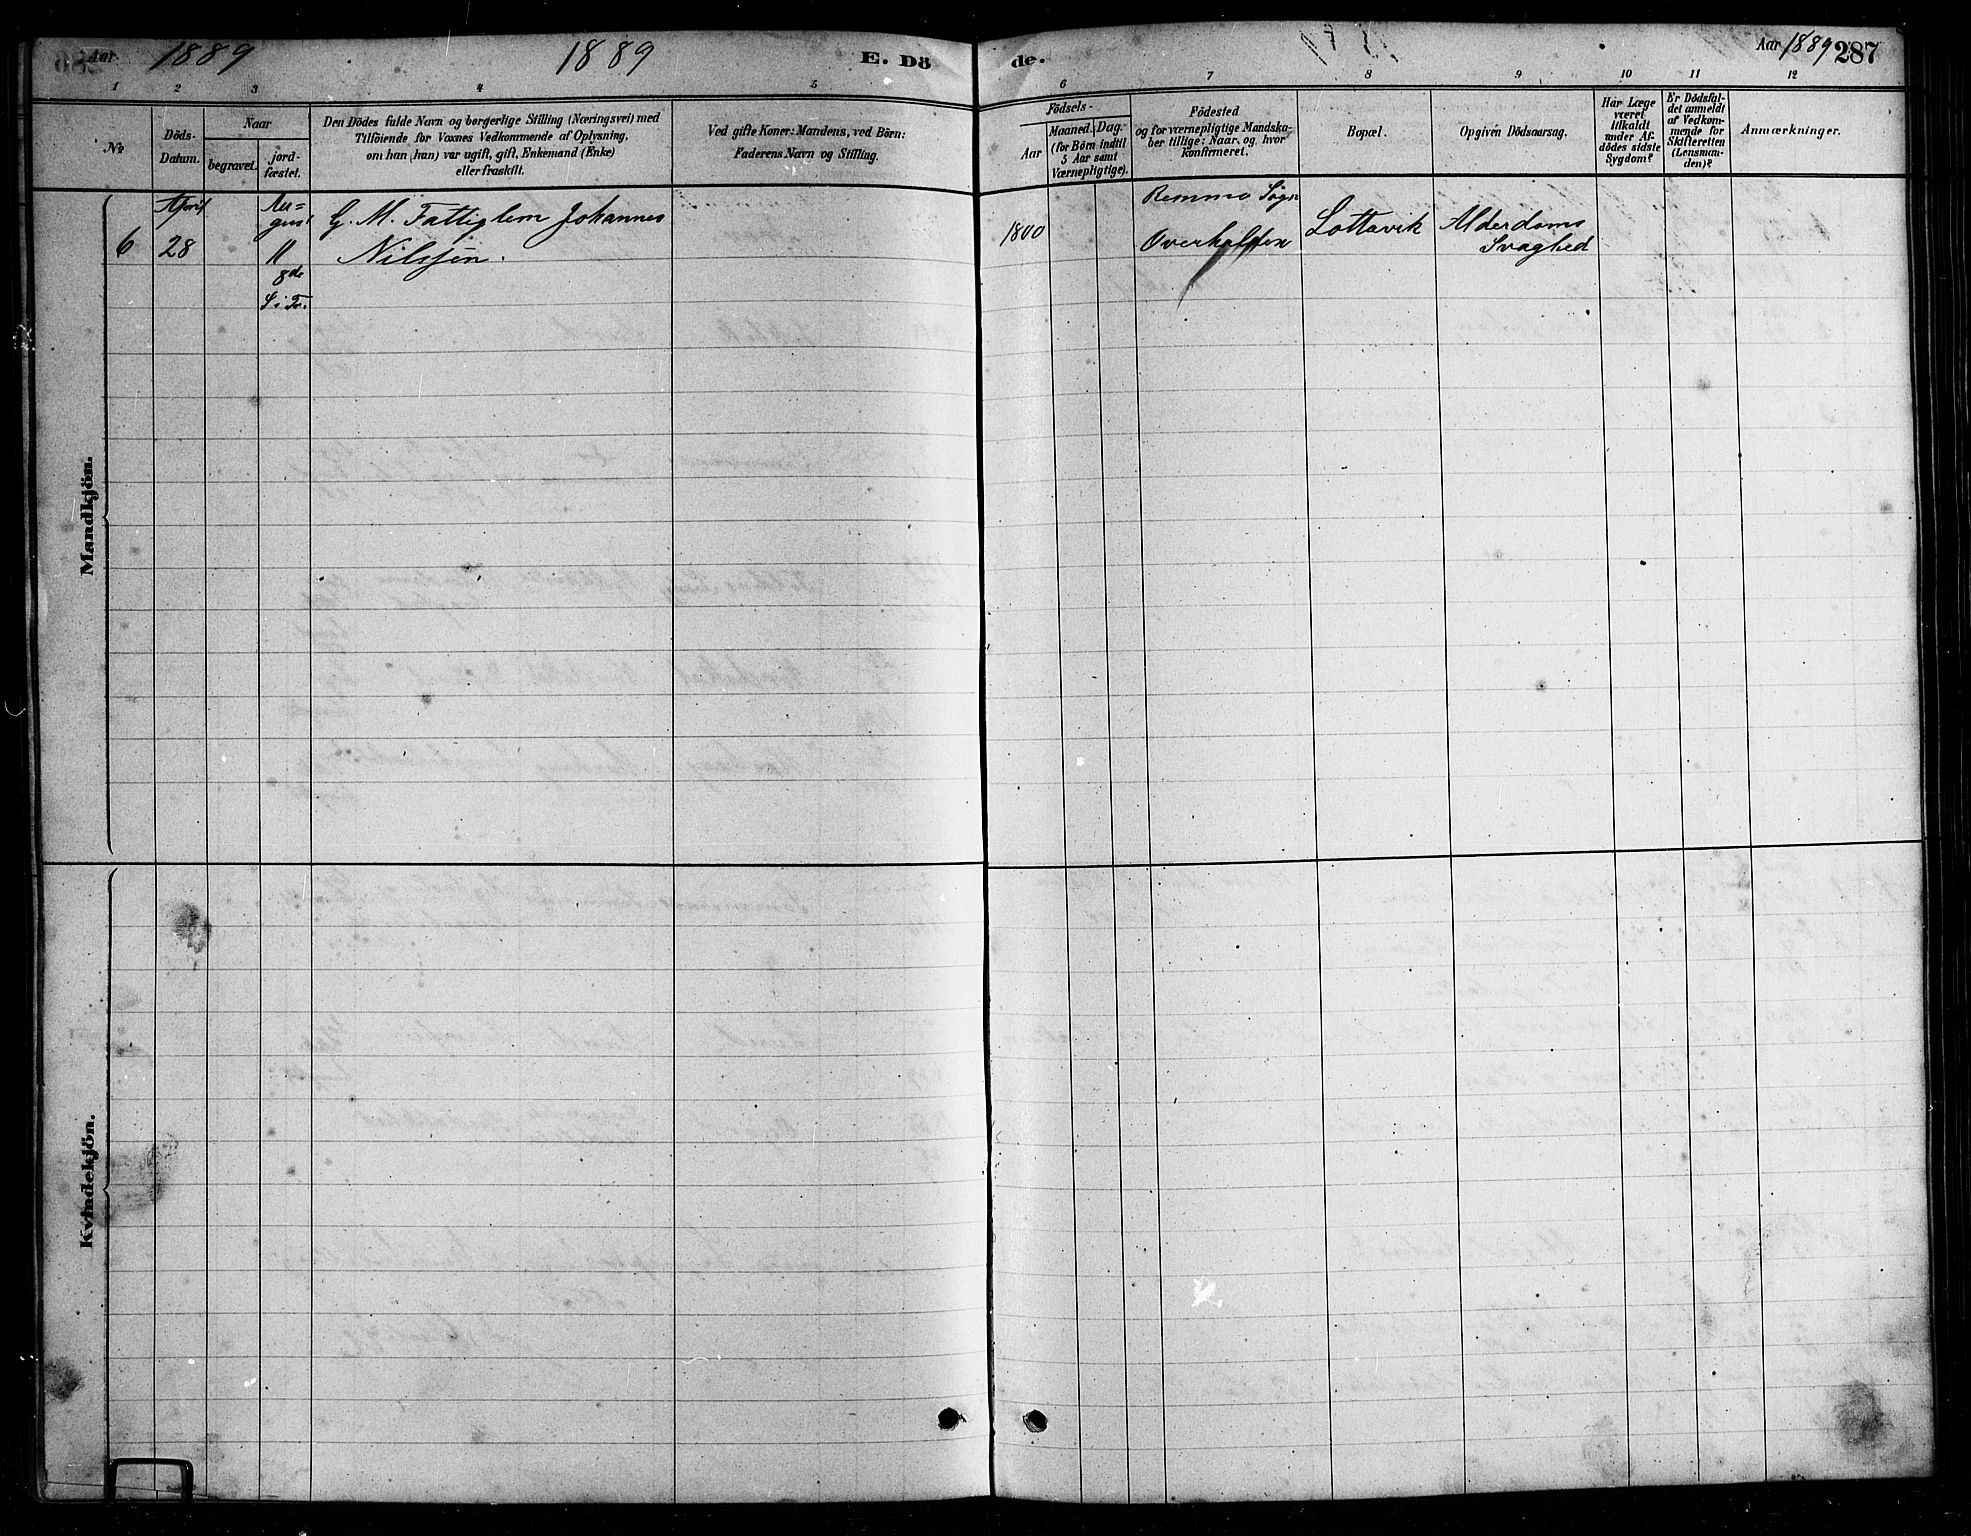 Aar 1889
1889
E. Dö
de.
Aar 1889
287
1
2
3
4
5
6
7
8
9
10
11
12
№
Döds-
Datum.
Naar
begravet.
jord-
fæstet.
Den Dödes fulde Navn og borgerlige Stilling (Næringsvei) med
Tilföiende for Voxnes Vedkommende af Oplysning,
om han (hun) var ugift, gift, Enkemand (Enke)
eller fraskilt.
Ved gifte Koner: Mandens, ved Börn:
Faderens Navn og Stilling.
Födsels-
Aar
Maaned. Dag.
(for Börn indtil
5 Aar samt
Værnepligtige).
Födested
og for værnepligtige Mandska-
ber tillige: Naar og hvor
konfirmeret.
Bopæl.
Opgiven Dödsaarsag.
Har Læge
været
tilkaldt
under Af-
dödes sidste
Sygdom?
Er Dödsfal-
det anmeldt
af Vedkom-
mende for
Skifteretten
(Lensman-
den)?
Anmærkninger.
Mandkjön.
April
6
28
Au-
gust
11
8de
S. i Tr.
G. M. Fattiglem Johannes
Nilssen.
1800
Remmo Sogn
Overhalden
Lottavik
Alderdoms
Svaghed
Kvindekjön.